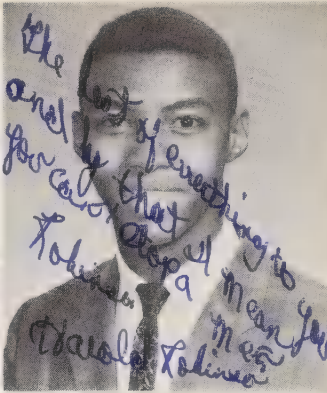 The best of everything to you
and by that I mean you
you can't stop a
Robinson man
Harold Robinson